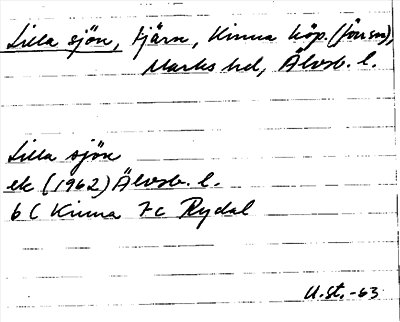 Lilla sjön, tjärn, Kinna köp. (förssn),
Marks hd, Älvsb. l.
Lilla sjön
ek (1962) Älvsb. l.
6 C Kinna 7c Rydal
U.st. -63